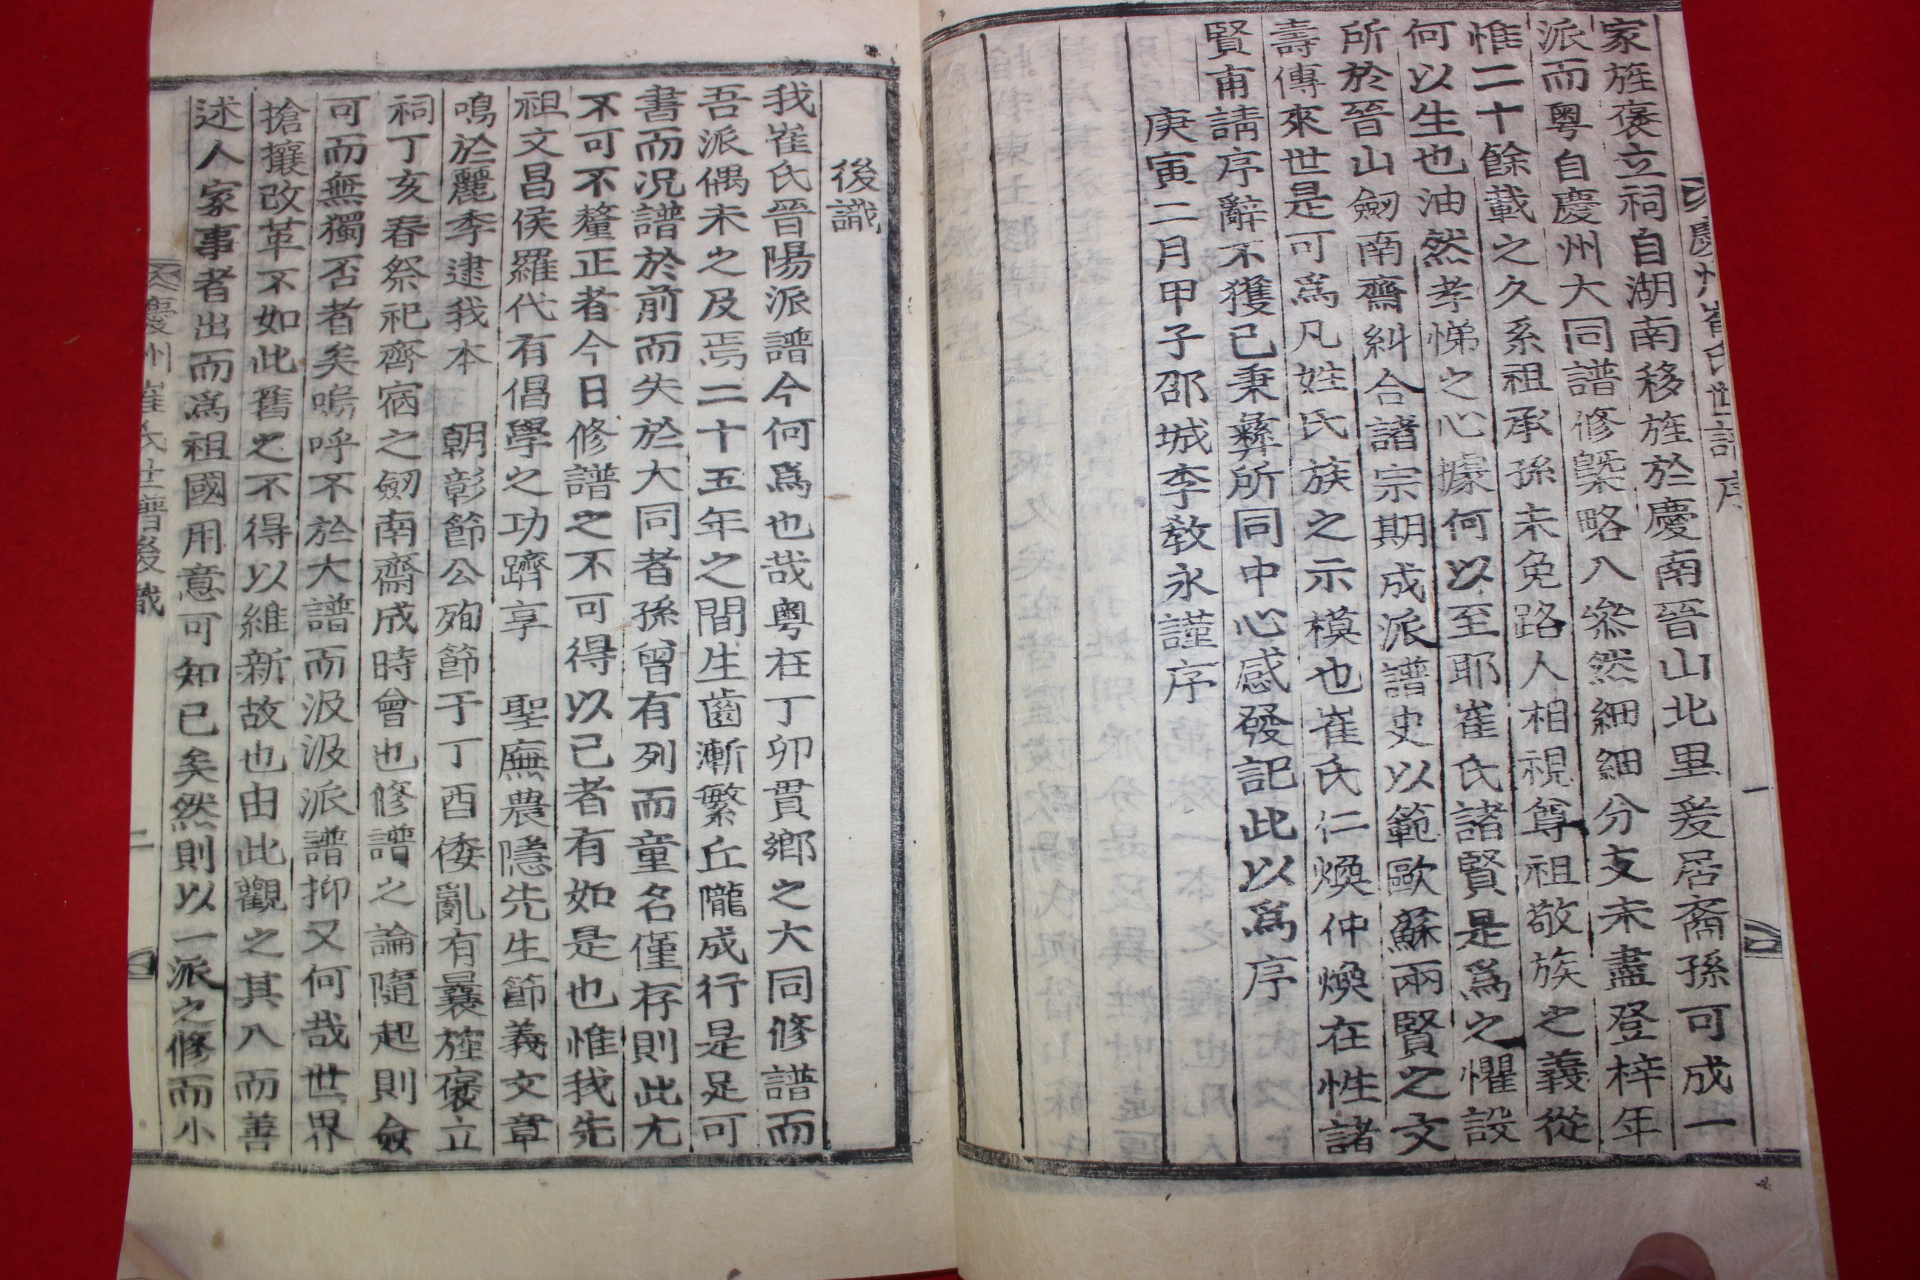 慶州崔氏世譜序
一
家旌褒立祠自湖南移旌於慶南晉山北里爰居裔孫可成一
派而粤自慶州大同譜修槩略八叅然細細分支未盡登梓年
惟二十餘載之久系祖承孫未免路人相視尊祖敬族之義從
何以生也油然孝悌之心據何以至耶崔氏諸賢是爲之懼設
所於晉山劒南齋糾合諸宗期成派譜史以範歐蘇兩賢之文
壽傳來世是可爲凡姓氏族之示模也崔氏仁煥仲煥在性諸
賢甫請序辭不獲已秉彛所同中心感發記此以爲序
庚寅二月甲子邵城李敎永謹序
後識
我崔氏晉陽派譜今何爲也哉粤在丁卯貫鄉之大同修譜而
吾派偶未之及焉二十五年之間生齒漸繁丘隴成行是足可
書而況譜於前而失於大同者孫曾有列而童名僅存則此尤
不可不釐正者今日修譜之不可得以已者有如是也惟我先
祖文昌侯羅代有倡學之功躋享 聖廡農隱先生節義文章
鳴於麗季逮我本 朝彰節公殉節于丁酉倭亂有曩旌褒立
祠丁亥春祭祀齊宿之劒南齋成時曾也修譜之論隨起則僉
可而無獨否者矣嗚呼不於大譜而汲汲派譜抑又何哉世界
搶攘改革不如此舊之不得以維新故也由此觀之其八而善
述人家事者出而爲祖國用意可知已矣然則以一派之修而小
慶州崔氏世譜後識
二